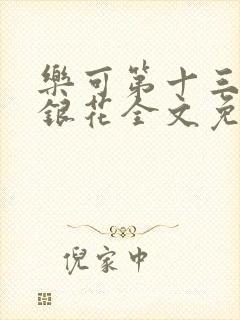 樂可第十三
銀花全文免
倪家中